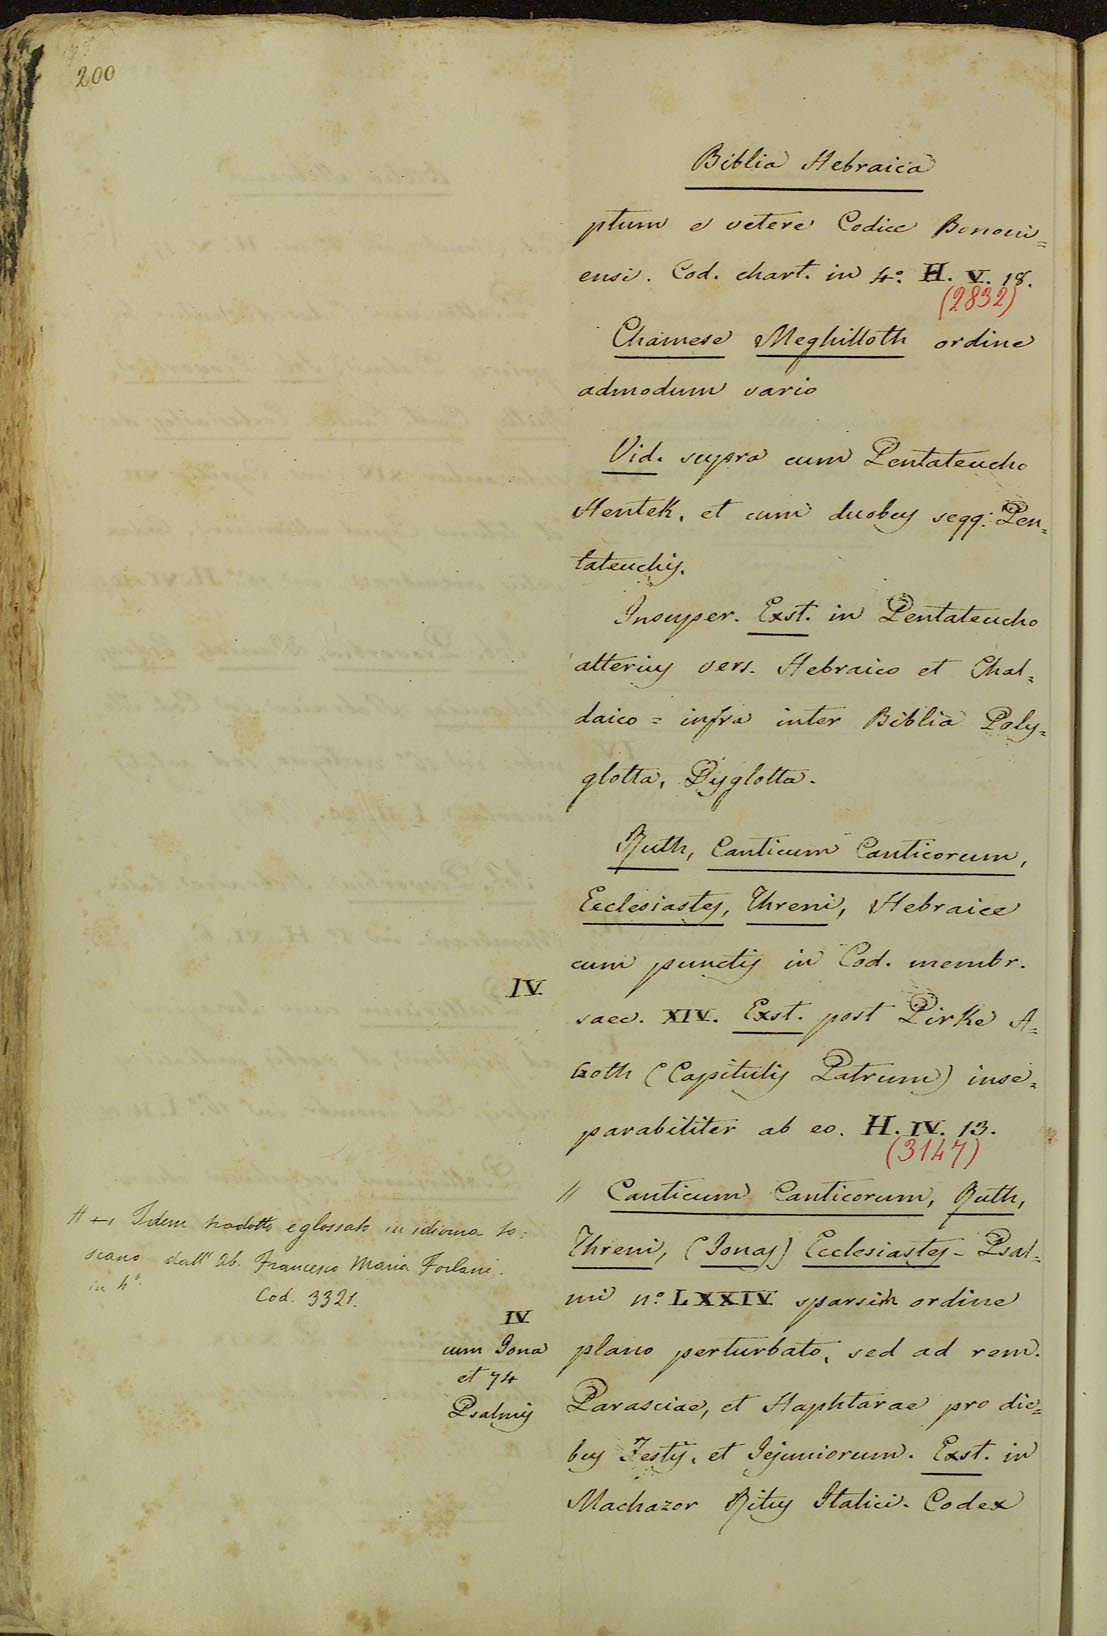 200
Biblia Hebraica
ptum e vetere Codice Bononi=
ensi. Cod. chart. in 4.º H. V. 18.
(2832)
Chamese Meghilloth ordine
admodum vario
Vid. supra cum Pentateucho
Hentek, et cum duobus seqq: Pen=
tateuchis.
Insuper. Exst. in Pentateucho
alterius vers. Hebraico et Chal=
daico = infra inter Biblia Poly=
glotta, Dyglotta.
Ruth, Canticum Canticorum,
Ecclesiastes, Threni, Hebraice
cum punctis in Cod. membr.
IV
saec. XIV. Exst. post Pirke A=
both (Capitulis Patrum) inse=
parabiliter ab eo. H. IV. 13.
(3147)
// Canticum Canticorum, Ruth,
Threni, (Jonas) Ecclesiastes - Psal=
mi n.º LXXIV sparsim ordine
plano perturbato, sed ad rem.
Parasciae, et Haphtarae pro die=
bus Festis, et Jejuniorum. Exst. in
Machazor Ritus Italici. Codex
Idem tradotto e glossato in idioma to=
scano dall' Ab. Francesco Maria Forlani.
in 4º.
Cod. 3321.
IV
cum Jona
et 74
Psalmis